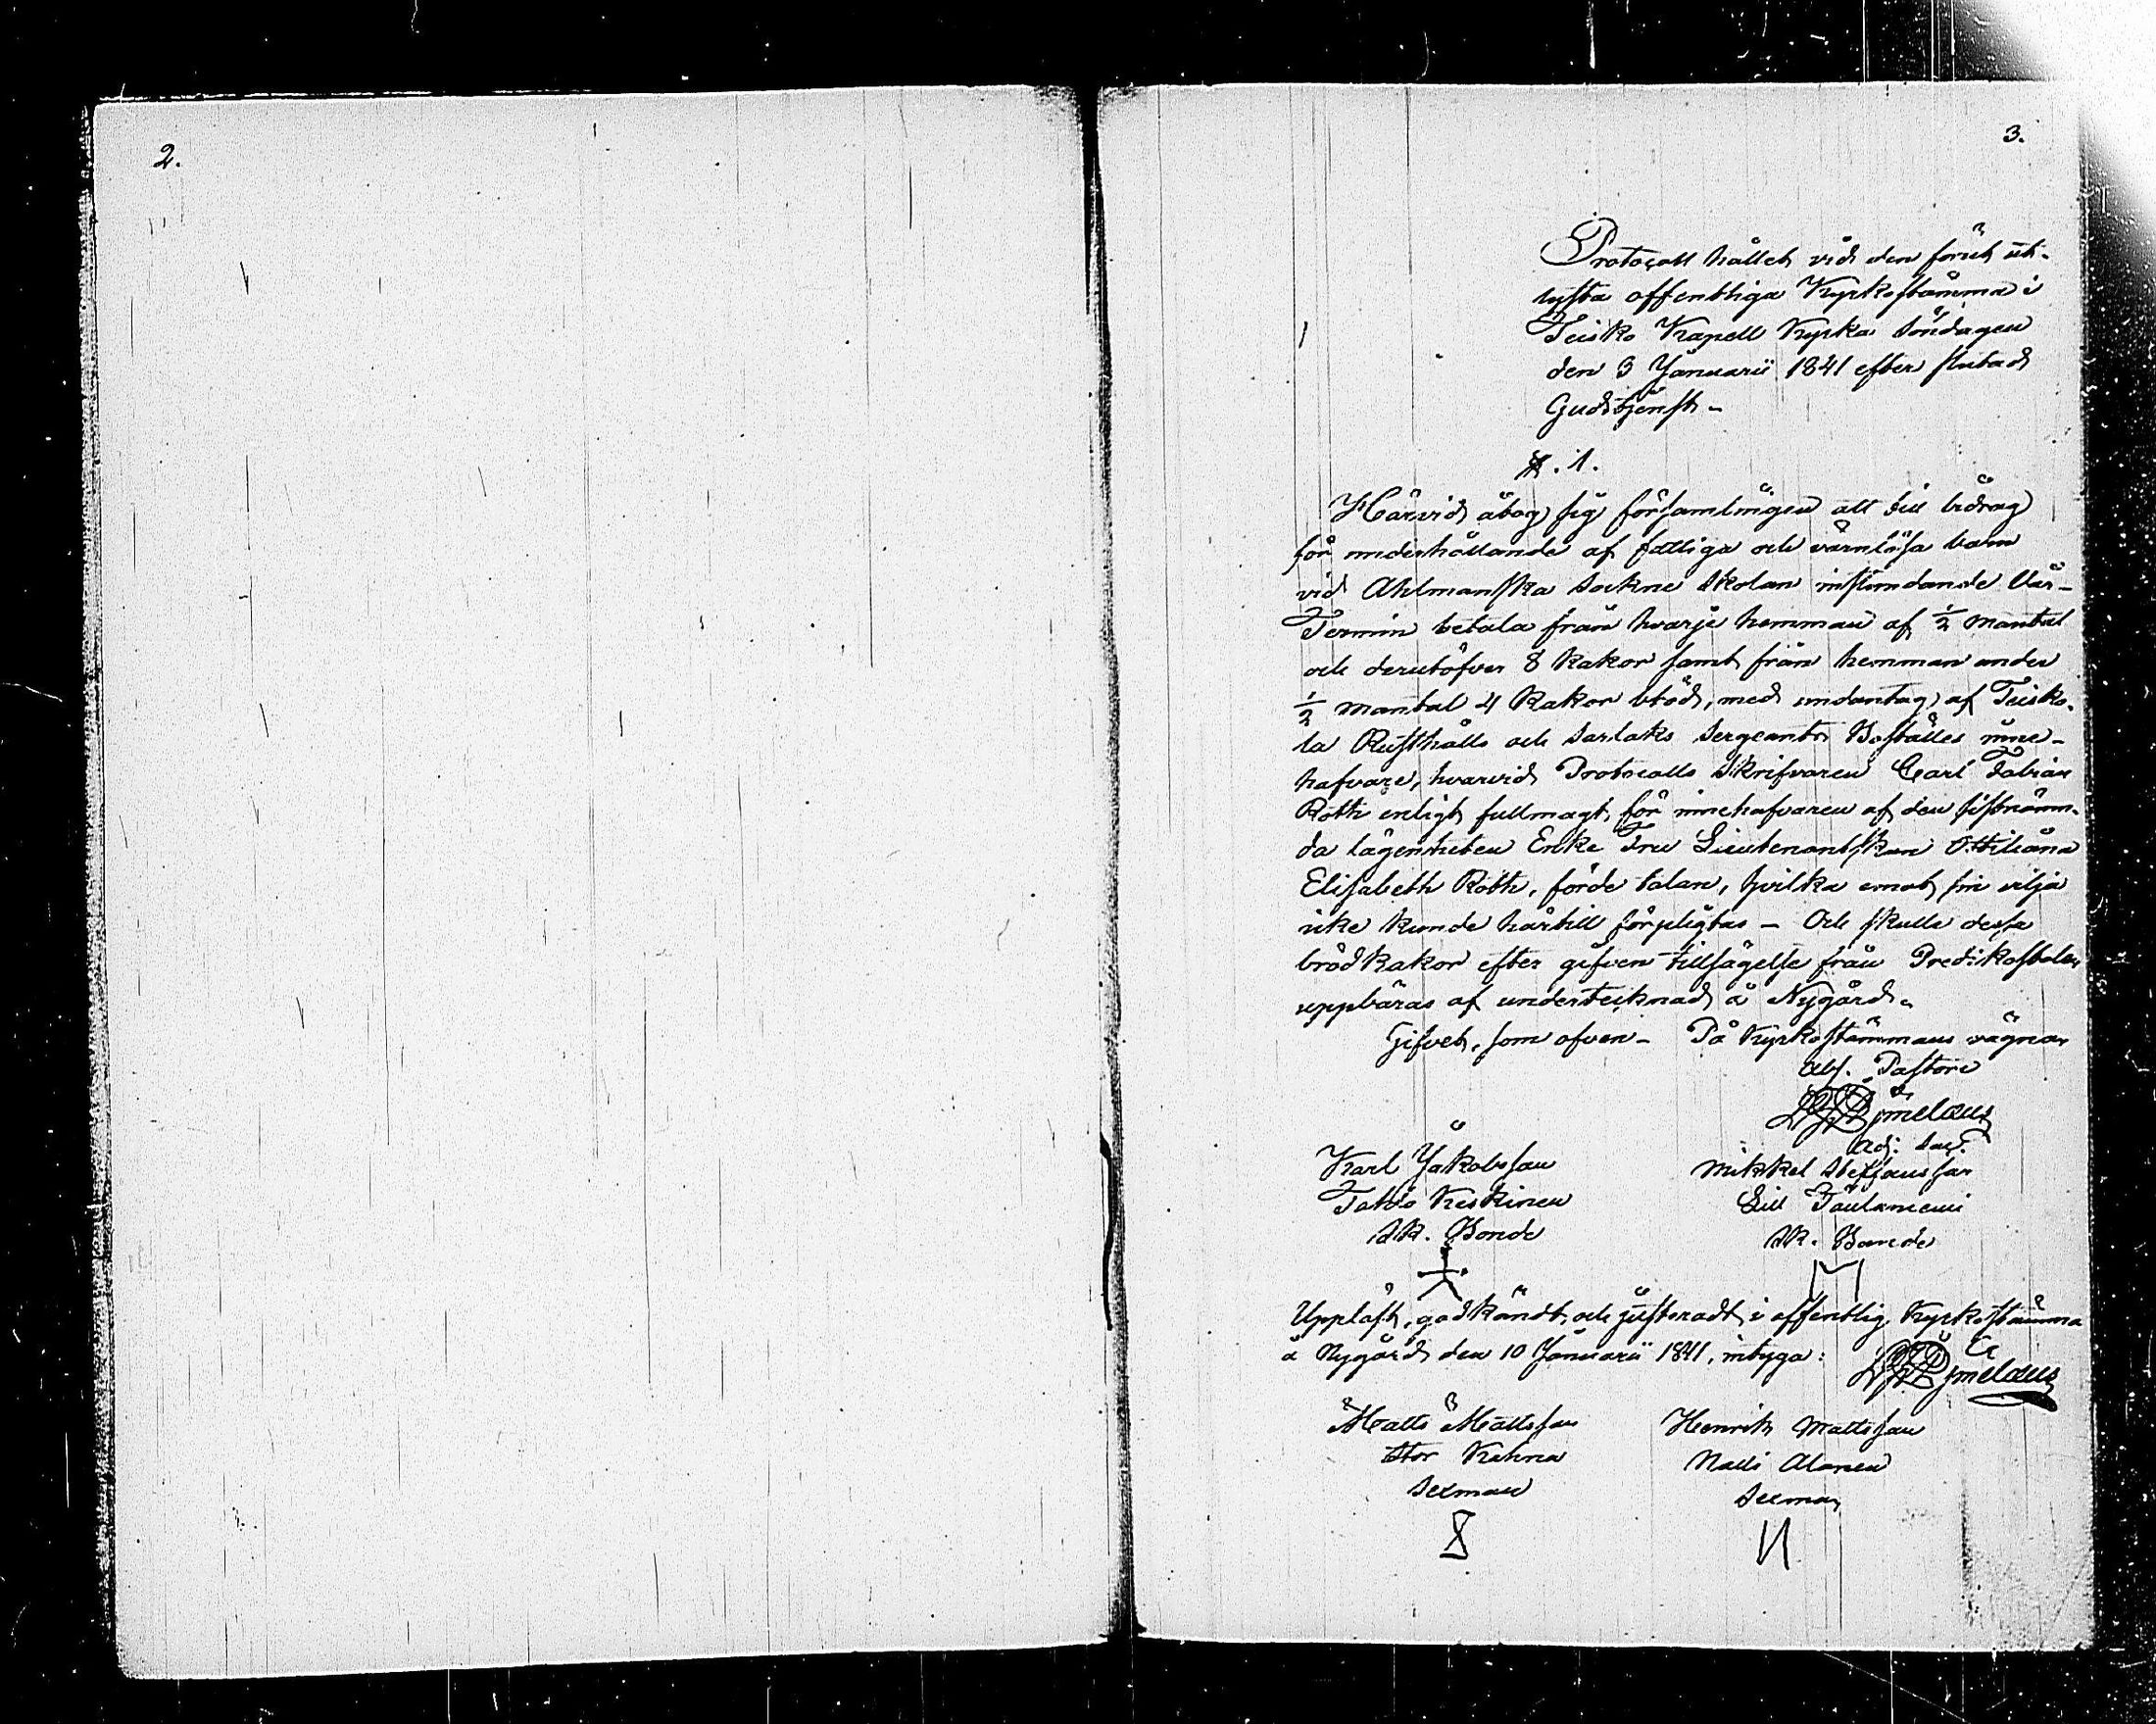 2.
3.
Protocoll hållet vid den förut ut-
lysta offentliga Kyrkostämma i
Teisko Kapell Kyrka söndagen
den 3 Januarii 1841 efter slutad
Gudstjenst -
§. 1.
Härvid åtog sig församlingen att till bidrag
för underhållande af fattiga och värnlösa barn
vid Ahlmanska Sockne Skolan instundande Vår-
Termin betala från hvarje hemman af ½ mantal
och derutöfver 8 Kakor samt från hemman under
½ mantal 4 Kakor bröd, med undantag af Teisko-
la Rusthålls och Sarlaks Sergeants Boställes inne-
hafvare, hvarvid Protocolls Skrifvaren Carl Fabian
Roth enligt fullmagt för innehafvaren af den sistnämn-
da lägenheten Enke Fru Lieutenantskan Ottiliana
Elisabeth Roth, förde talan, hvilka emot sin vilja
icke kunde härtill förpligtas - Och skulle dessa
brödkakor efter gifven tillsägelse från Predikostolen
uppbäras af undertecknad å Nygård.
Gifvet, som ofvan - På Kyrkostämmans vägnar
Abs. Pastore
melæus
Adj. Sac.
Karl Jakobsson Mikkel Steffansson
Keskinen Lill
Sk. Bonde Sk. Bonde
Uppläst, godkändt, och justeradt i offentlig Kyrkostämma
å Nygård den 10 Januarii 1841, intyga:
melæus
Matts Mattsson Henrik Mattsson
Stor Kahna Alanen
Sexman Sexman